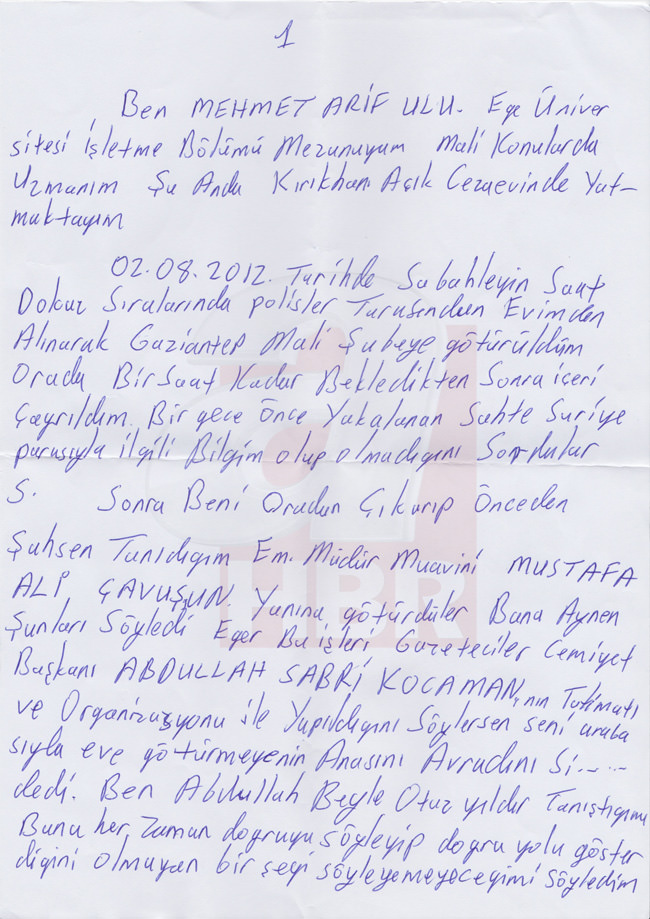 1
Ben MEHMET ARİF ULU. Ege Üniver
sitesi İşletme Bölümü Mezunuyum Mali Konularda
Uzmanım Şu Anda Kırıkhan Açık Cezaevinde Yat-
maktayım
02.08.2012. Tarihde Sabahleyin Saat
Dokuz Sıralarında polisler Tarafından Evimden
Alınarak Gaziantep Mali Şubeye götürüldüm
Orada Bir Saat Kadar Bekledikten Sonra içeri
Çayrıldım. Bir gece Önce Yakalanan Sahte Suriye
parasıyla ilgili Bilgim olup olmadıgını Sordular
S. Sonra Beni Oradan Çıkarıp Önceden
Şahsen Tanıdıgım Em. Müdür Muavini MUSTAFA
ALİ ÇAVUŞUN Yanına götürdüler Bana Aynen
Şunları Söyledi Eger Bu işleri Gazeteciler Cemiyet
Başkanı ABDULLAH SABRİ KOCAMAN'nın Talimatı
ve Organizasyonu ile Yapıldıgını Söylersen seni araba
sıyla eve götürmeyenin Anasını Avradını Si.....
dedi. Ben Abdullah Beyle Otuz yıldır Tanıştıgımı
Bana her Zaman doğruyu söyleyip doğru yolu göster
digini olmayan bir şeyi söyleyemeyecegimi söyledim
a
HBR